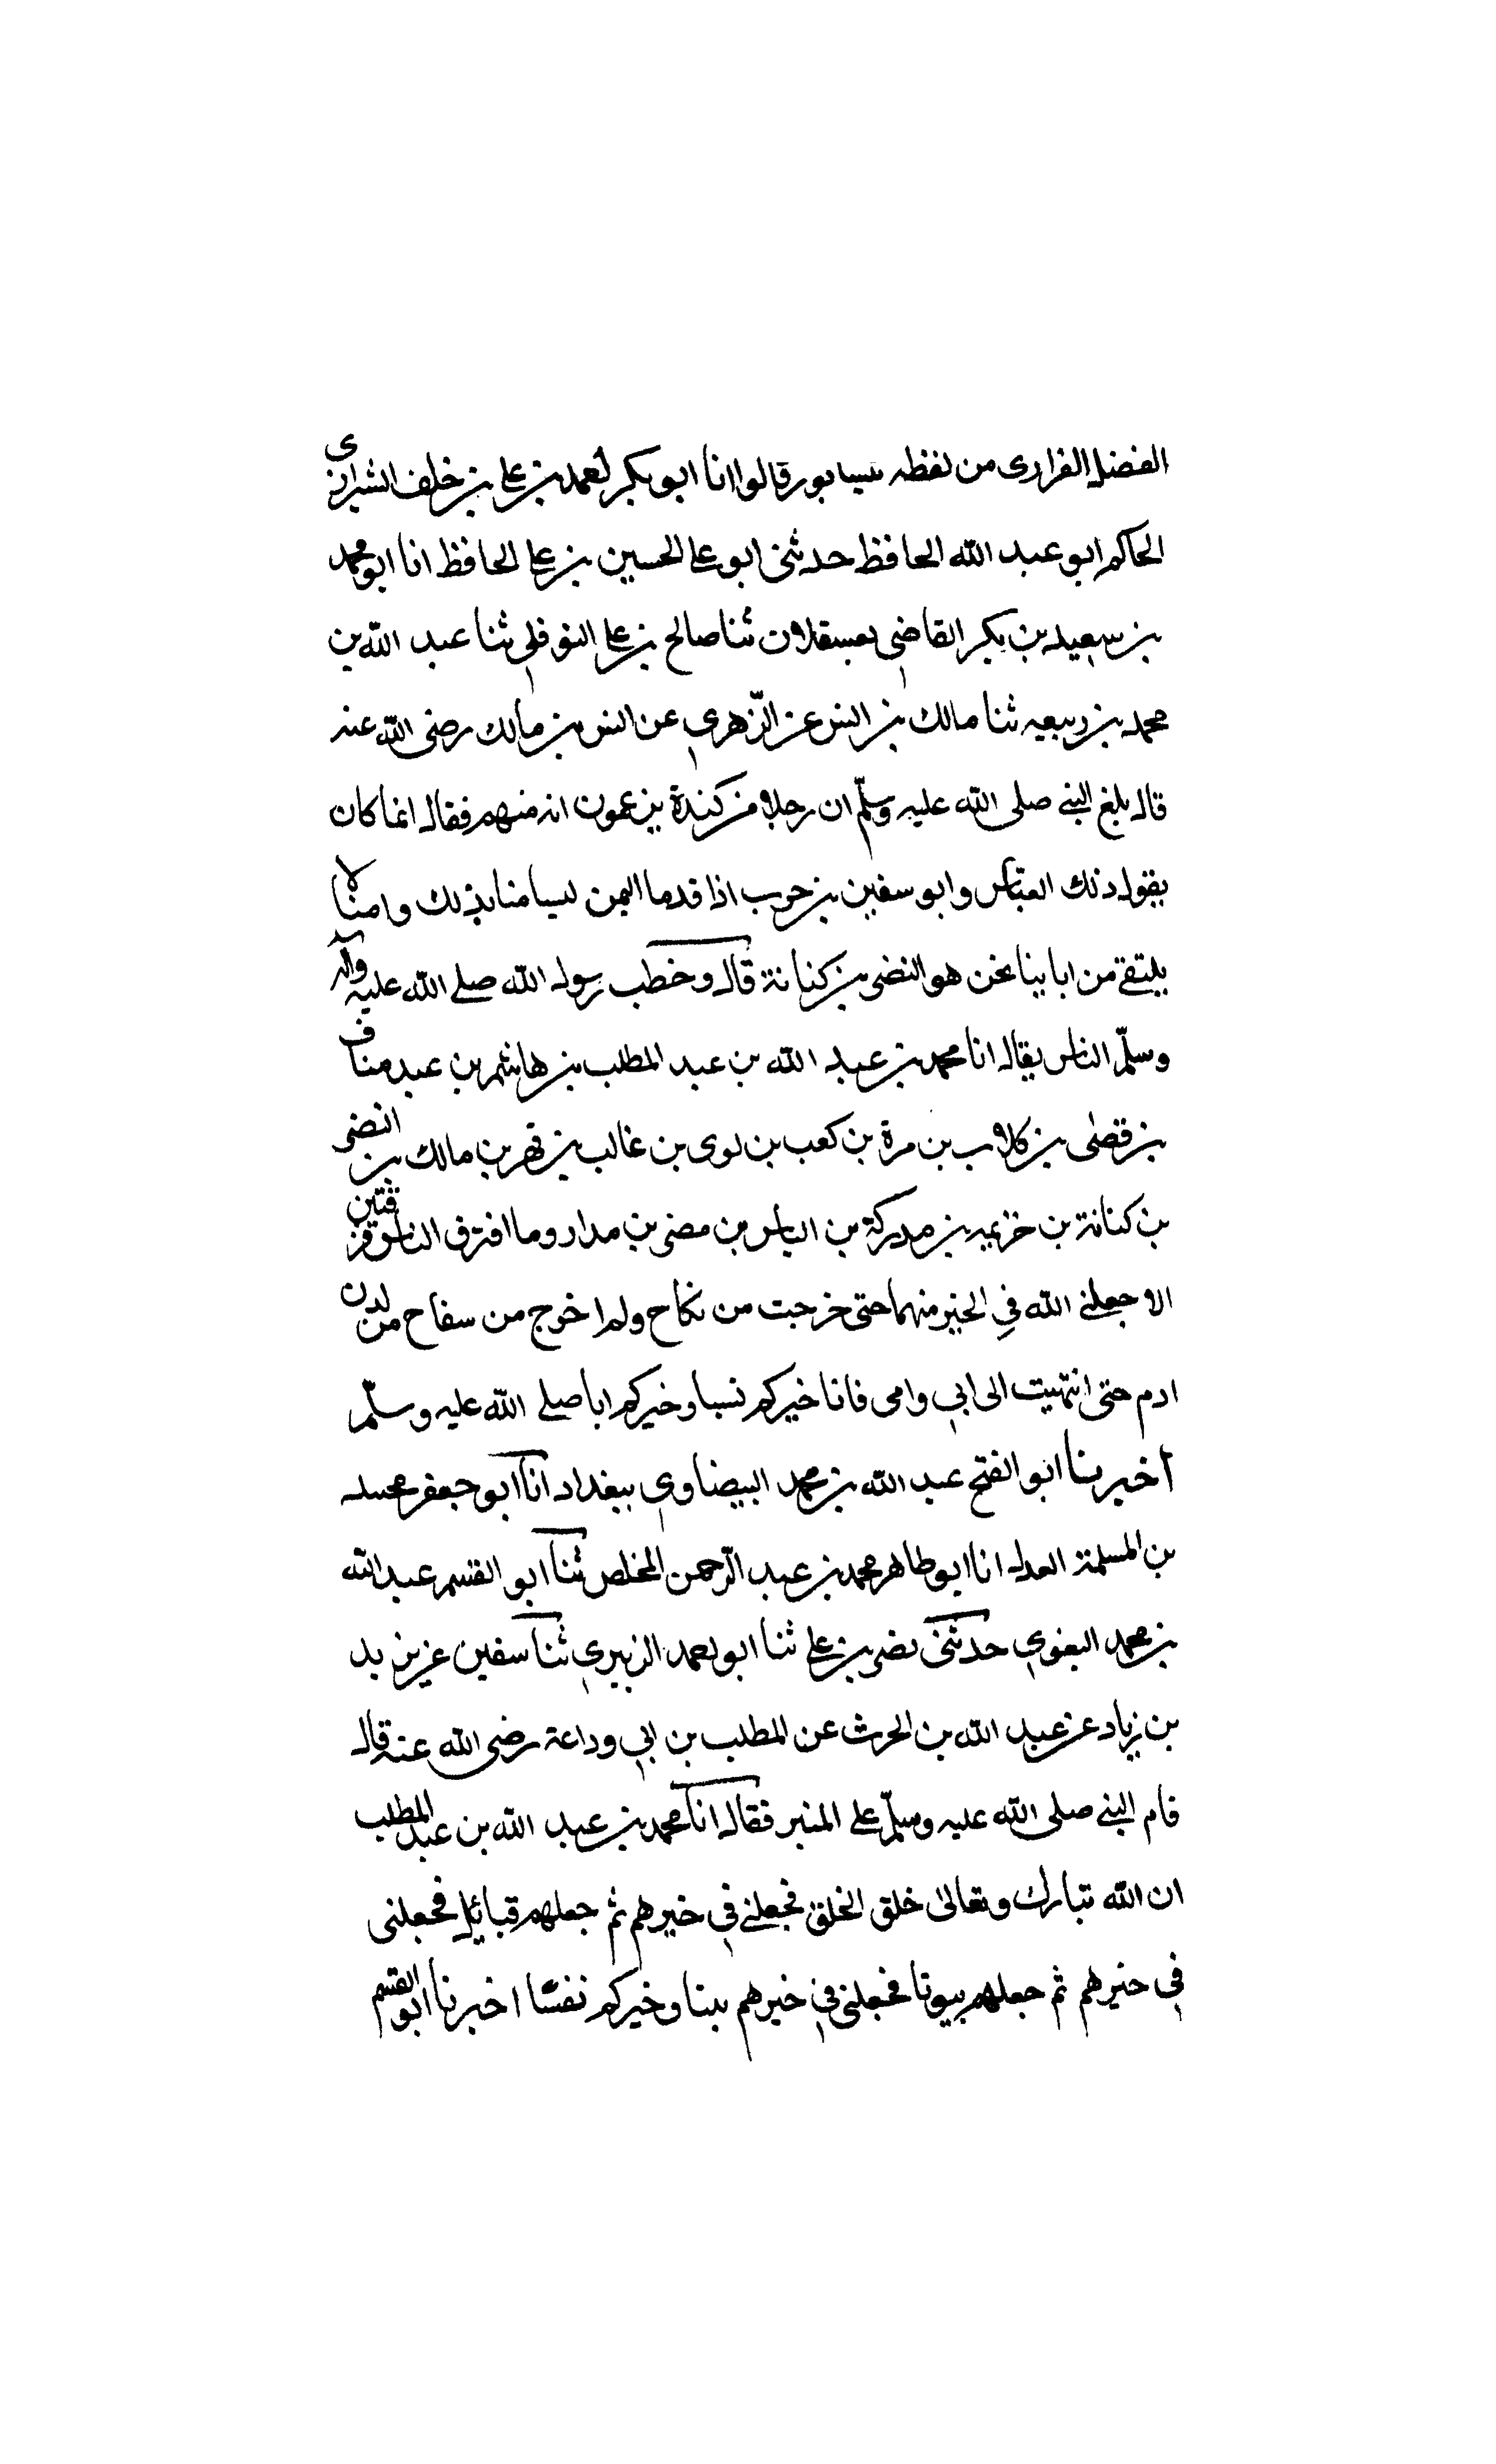 الفضل الفراوى من لفظه بنيسابور قالوا انا ابو بكر احمد بن على بن خلف الشيرازى
الحاكم ابو عبد الله الحافظ حدثنى ابو على الحسين بن على الحافظ انا ابو محمد
بن سعيد بن بكر القاضى بعسقلان ثنا صالح بن على النوفلى ثنا عبد الله بن
محمد بن ربيعه ثنا مالك بن انس عن الزهرى عن انس بن مالك رضى الله عنه
قال بلغ النبى صلى الله عليه وسلم ان رجلا من كندة يزعمون انه منهم فقال انما كان
يقول ذلك العباس وابو سفين بن حرب اذا قدما اليمن ليأمنا بذلك وانا لا
من ابائنا نحن بنو النضر بن كنانة قال وخطب رسول الله صلى الله عليه وآله
وسلم الناس فقال انا محمد بن عبد الله بن عبد المطلب بن هاشم بن عبد مناف
بن قصى بن كلاب بن مرة بن كعب بن لوى بن غالب بن فهر بن مالك بن النضر
بن كنانة بن خزيمه بن مدركة بن الياس بن مضر بن وما افترق الناس فرقتين
الا جعلنى الله فى الخير منهما حتى خرجت من نكاح ولم اخرج من سفاح من لدن
ادم حتى انتهيت الى ابى وامى فانا خيركم نسبا وخيركم ابا صلى الله عليه وسلم
أخبرنا ابو الفتح عبد الله بن محمد البيضاوى ببغداد انا ابو جعفر محمد
بن المسلمة العدل انا ابو طاهر محمد بن عبد الرحمن المخلص ثنا ابو القسم عبد الله
بن محمد البغوى حدثنى نصر بن على ثنا ابو احمد الزبيرى ثنا سفين عن يزيد
بن زياد عن عبد الله بن الحرث عن المطلب بن ابى وداعة رضى الله عنه قال
قام النبى صلى الله عليه وسلم على المنبر فقال انا محمد بن عبد الله بن عبد المطلب
ان الله تبارك وتعالى خلق الخلق فجعلنى فى خيرهم ثم جعلهم قبائل فجعلنى
فى خيرهم ثم جعلهم بيوتا فجعلنى فى خيرهم بيتا وخيركم نفسًا اخبرنا ابو القسم